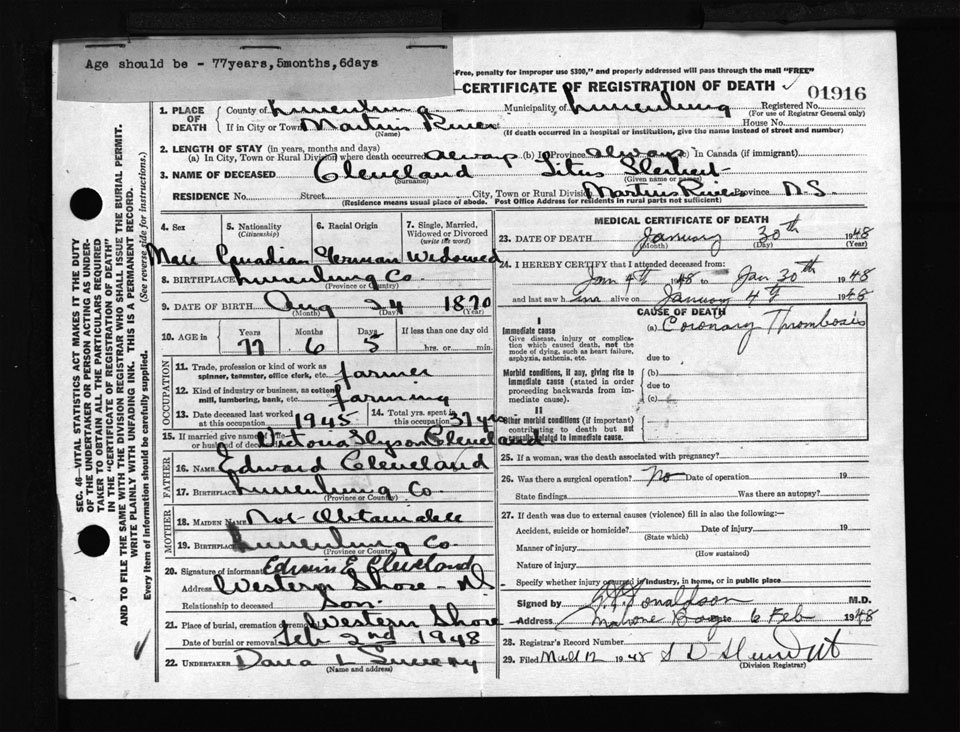 Age should be - 77years,5months,6days
-Free, penalty for improper use $300," and properly addressed will pass through the mail "FREE"
CERTIFICATE OF REGISTRATION OF DEATH
01916
1. PLACE OF DEATH
County of Lunenburg Municipality of Lunenburg Registered No.
(For use of Registrar General only)
If in City or Town Martins River House No.
(Name) (If death occurred in a hospital or institution, give the name instead of street and number)
2. LENGTH OF STAY (in years, months and days)
(a) In City, Town or Rural Division where death occurred always (b) In Province always (c) In Canada (if immigrant)
3. NAME OF DECEASED Cleveland Titus Herbert
(Surname) (Given name or names)
RESIDENCE No. Street City, Town or Rural Division Martins River Province N.S.
(Residence means usual place of abode. Post Office Address for residents in rural parts not sufficient)
4. Sex 5. Nationality (Citizenship) 6. Racial Origin 7. Single, Married, Widowed or Divorced (write the word)
Male Canadian German Widowed
8. BIRTHPLACE Lunenburg Co.
(Province or Country)
9. DATE OF BIRTH Aug 24 1870
(Month) (Day) (Year)
10. AGE in Years Months Days If less than one day old
77 6 5 hrs. or min.
OCCUPATION
11. Trade, profession or kind of work as spinner, teamster, office clerk, etc. farmer
12. Kind of industry or business, as cotton mill, lumbering, bank, etc. farming
13. Date deceased last worked at this occupation 1945 14. Total yrs. spent in this occupation 37 yrs
15. If married give name of wife or husband of deceased Victoria Cleveland
FATHER
16. NAME Edward Cleveland
17. BIRTHPLACE Lunenburg Co.
(Province or Country)
MOTHER
18. MAIDEN NAME Not Obtainable
19. BIRTHPLACE Lunenburg Co.
(Province or Country)
20. Signature of informant Edwin E Cleveland
Address Western Shore N.S.
Relationship to deceased Son.
21. Place of burial, cremation or removal Western Shore
Date of burial or removal Feb 2nd 1948
22. UNDERTAKER
(Name and address)
MEDICAL CERTIFICATE OF DEATH
23. DATE OF DEATH January 30th 1948
(Month) (Day) (Year)
24. I HEREBY CERTIFY that I attended deceased from:
Jan 4th 1948 to Jan 30th 1948
and last saw h im alive on January 4th 1948
CAUSE OF DEATH
I
Immediate cause (a) Coronary Thrombosis
Give disease, injury or complication which caused death, not the mode of dying, such as heart failure, asphyxia, asthenia, etc.
due to
Morbid conditions, if any, giving rise to immediate cause (stated in order proceeding backwards from immediate cause).
(b)
due to
(c)
II
Other morbid conditions (if important) contributing to death but not causally related to immediate cause.
25. If a woman, was the death associated with pregnancy?
26. Was there a surgical operation? No Date of operation 19
State findings Was there an autopsy?
27. If death was due to external causes (violence) fill in also the following:—
Accident, suicide or homicide? Date of injury 19
(State which)
Manner of injury
(How sustained)
Nature of injury
Specify whether injury occurred in industry, in home, or in public place
Signed by Donaldson M.D.
Address Mahone Bay 6 Feb 1948
28. Registrar's Record Number
29. Filed 1948
(Division Registrar)
SEC. 46—VITAL STATISTICS ACT MAKES IT THE DUTY
OF THE UNDERTAKER OR PERSON ACTING AS UNDERTAKER
TO OBTAIN ALL THE PARTICULARS REQUIRED
IN THE "CERTIFICATE OF REGISTRATION OF DEATH"
AND TO FILE THE SAME WITH THE DIVISION REGISTRAR WHO SHALL ISSUE THE BURIAL PERMIT.
WRITE PLAINLY WITH UNFADING INK. THIS IS A PERMANENT RECORD.
Every item of information should be carefully supplied. (See reverse side for instructions.)